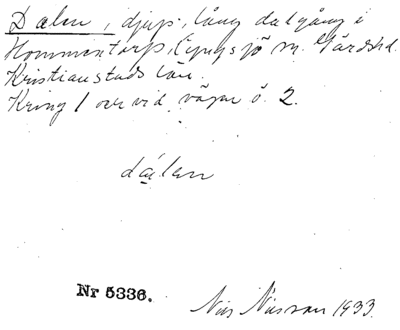 Dalen, djup, lång dalgång i
Hommentorp, Ljungsjö m. Gärdsh.
Kristianstads län.
Kring 1 over vid vägar ö. 2.
dálen
Nr 5336.
Nils Nilsson 1933.